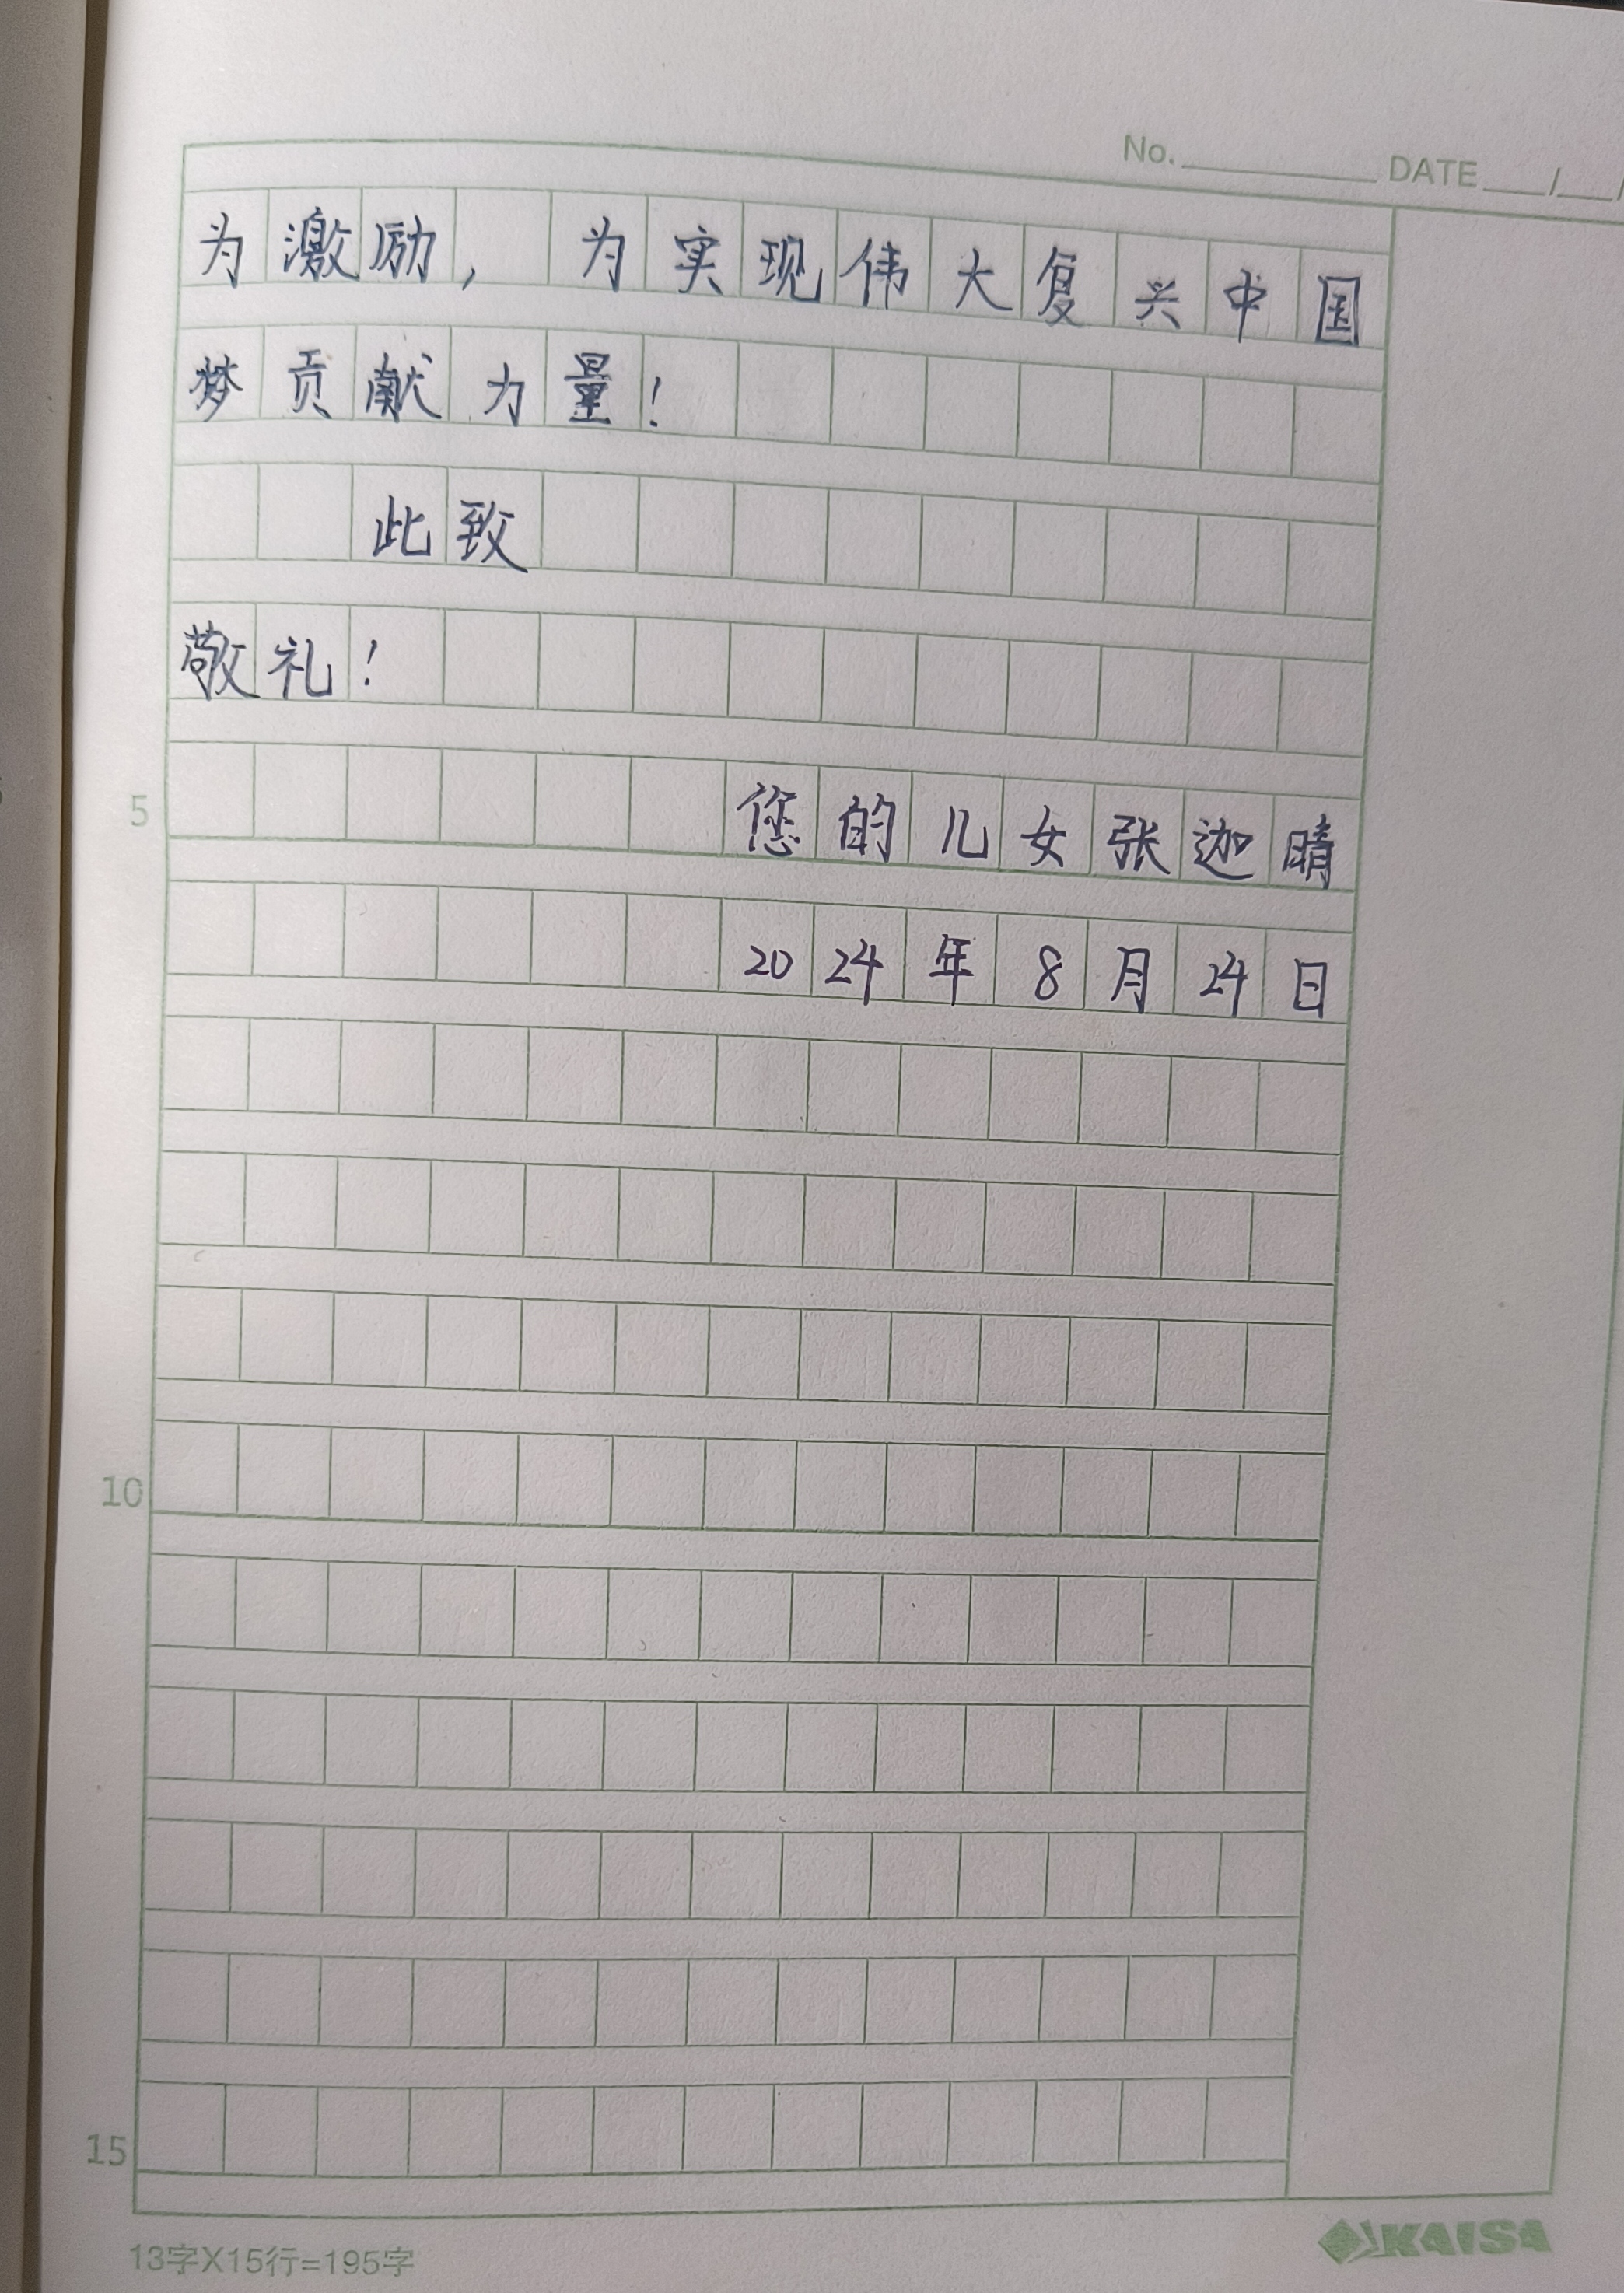 No. DATE / /
为激励，为实现伟大复兴中国
梦贡献力量！
此致
敬礼！
5
您的儿女张迦晴
2024年8月24日
10
15
13字X15行=195字
KAISA